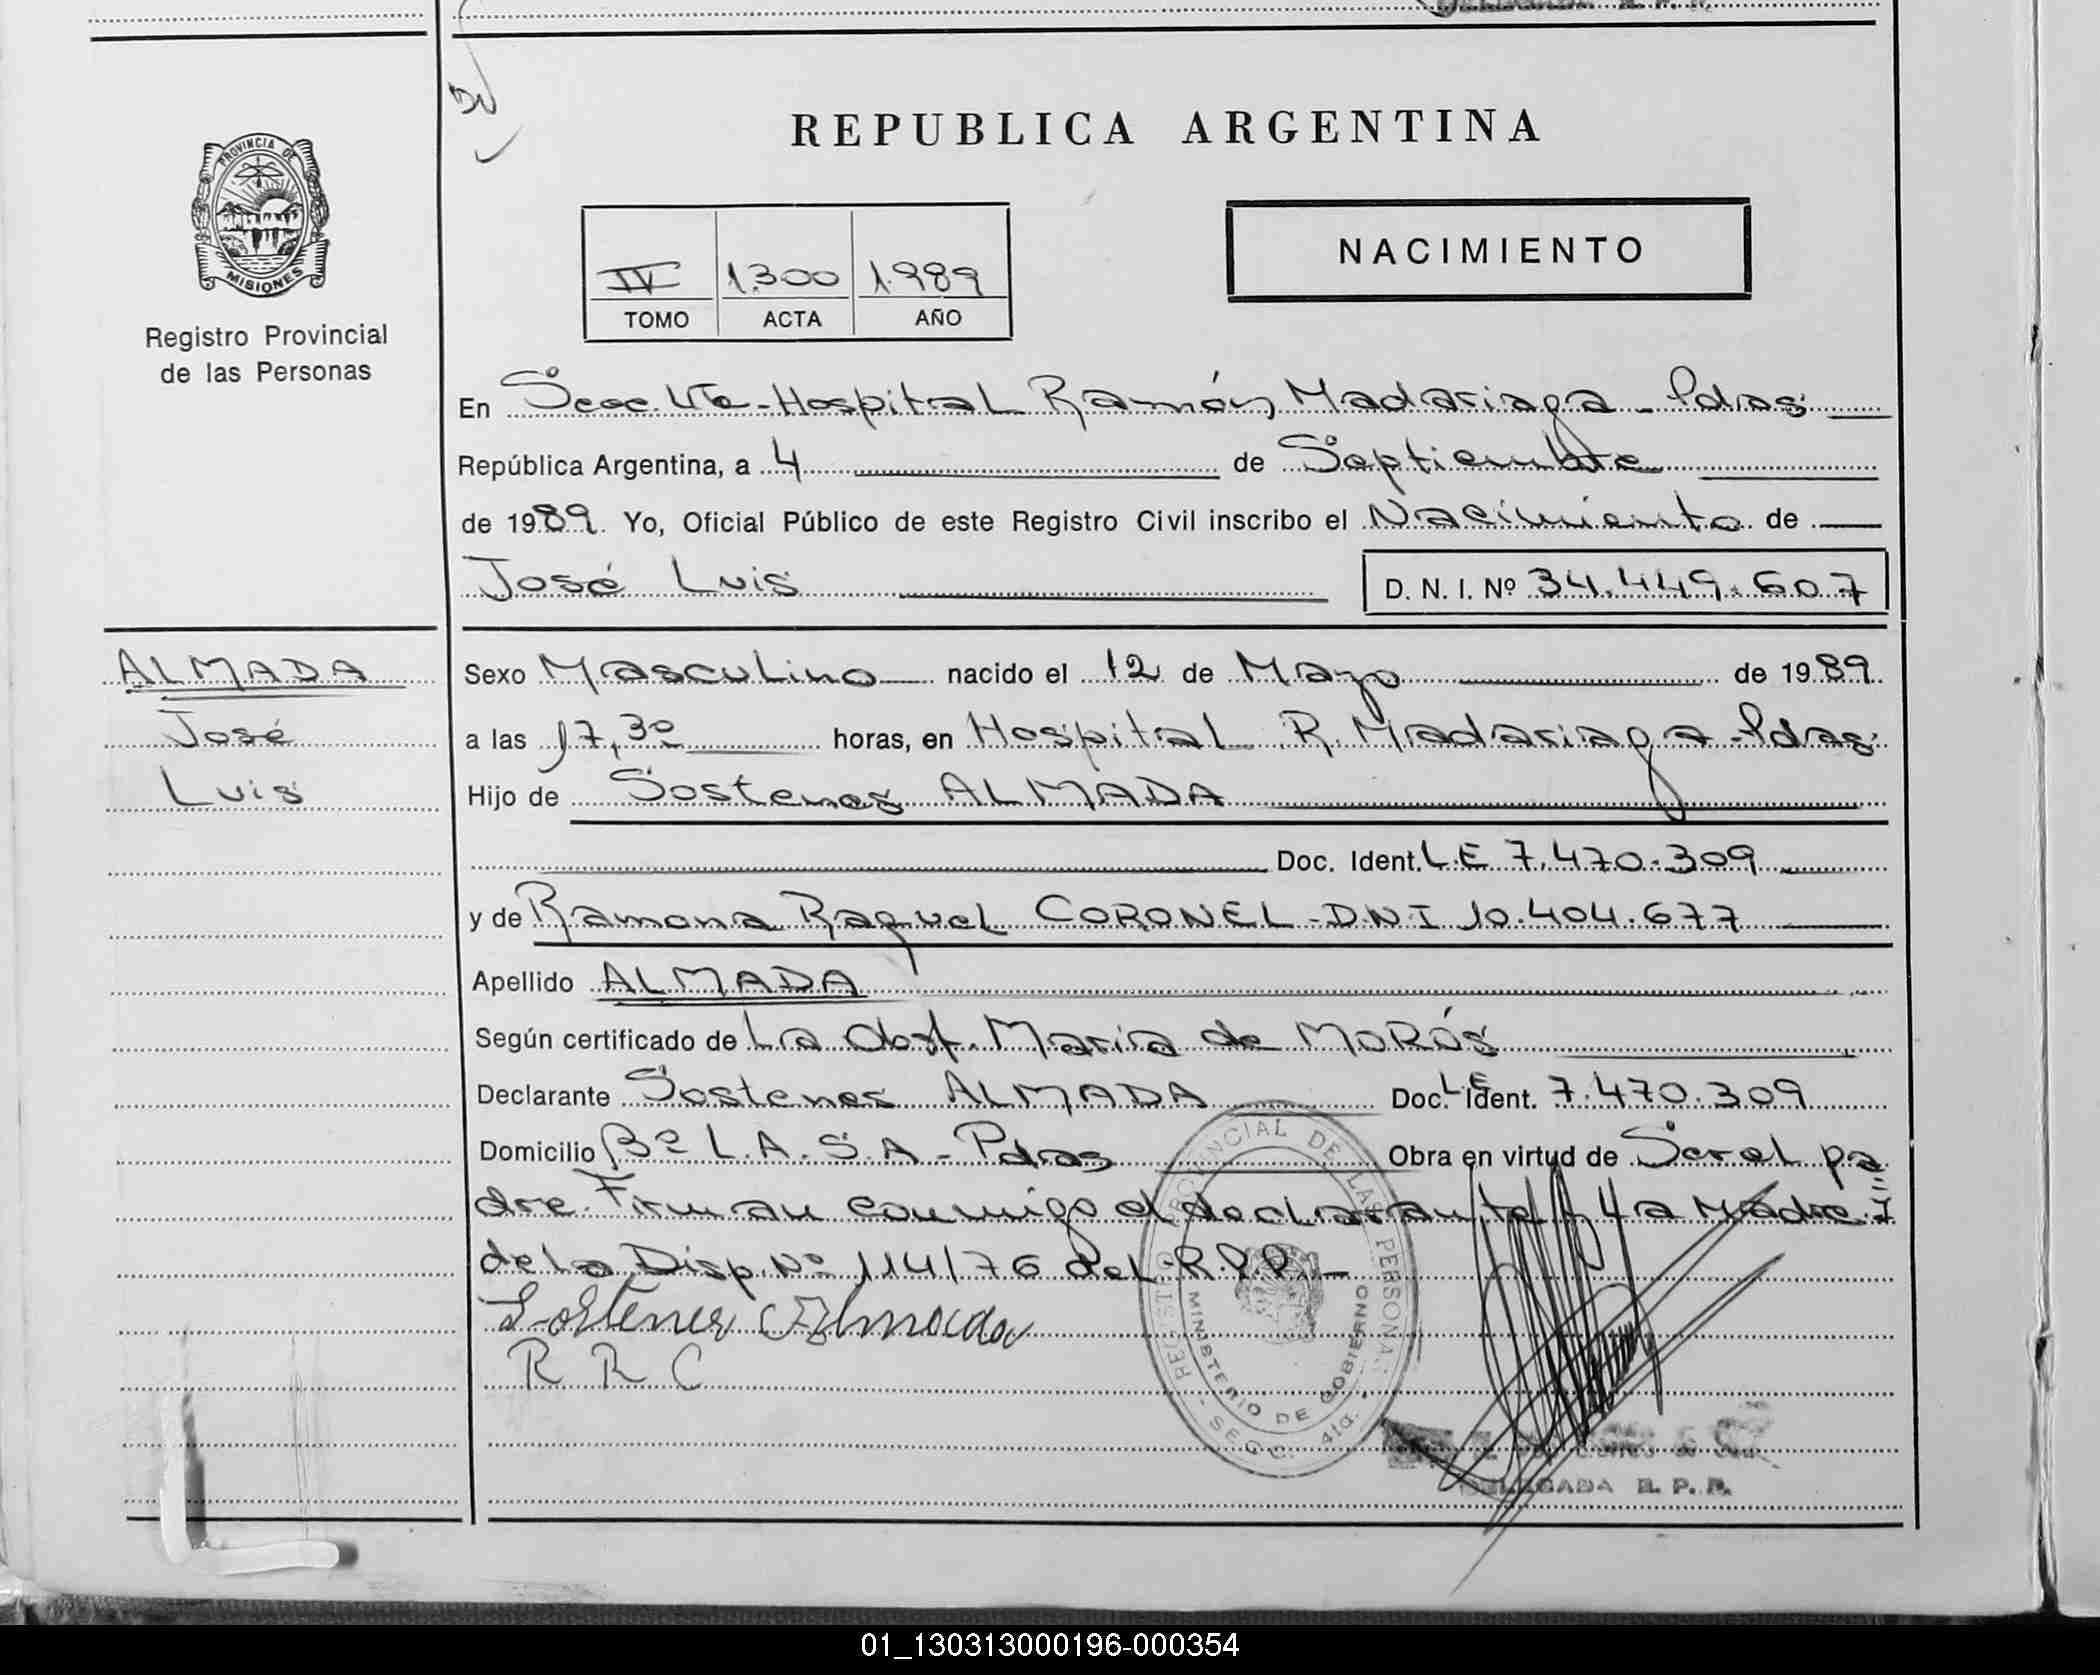 DELEGADA R. P. P.
REPUBLICA ARGENTINA
PROVINCIA DE
MISIONES
Registro Provincial
de las Personas
NACIMIENTO
IV 1.300 1.989
TOMO ACTA AÑO
En Secc. 4ta - Hospital Ramón Madariaga - Pdas
República Argentina, a 4 de Septiembre
de 1989. Yo, Oficial Público de este Registro Civil inscribo el Nacimiento de
José Luis D. N. I. Nº 34.449.607
ALMADA
José
Luis
Sexo Masculino nacido el 12 de Mayo de 1989.
a las 17,30 horas, en Hospital R. Madariaga - Pdas
Hijo de Sostenes ALMADA
Doc. Ident. L.E 7.470.309
y de Ramona Raquel CORONEL - D.N.I 10.404.677
Apellido ALMADA
Según certificado de La Obst. Maria de MORÓS
Declarante Sostenes ALMADA Doc. Ident. L.E 7.470.309
Domicilio Bº L.A.S.A - Pdas Obra en virtud de Ser el pa=
dre. Firman conmigo el declarante y la Madre. I
de la Disp. Nº 114/76 del R.P.P. -
Sostenes Almada
R R C
REGISTRO PROVINCIAL DE LAS PERSONAS
MINISTERIO DE GOBIERNO
- SECC. 4ta. -
DELEGADA R. P. P.
01_130313000196-000354